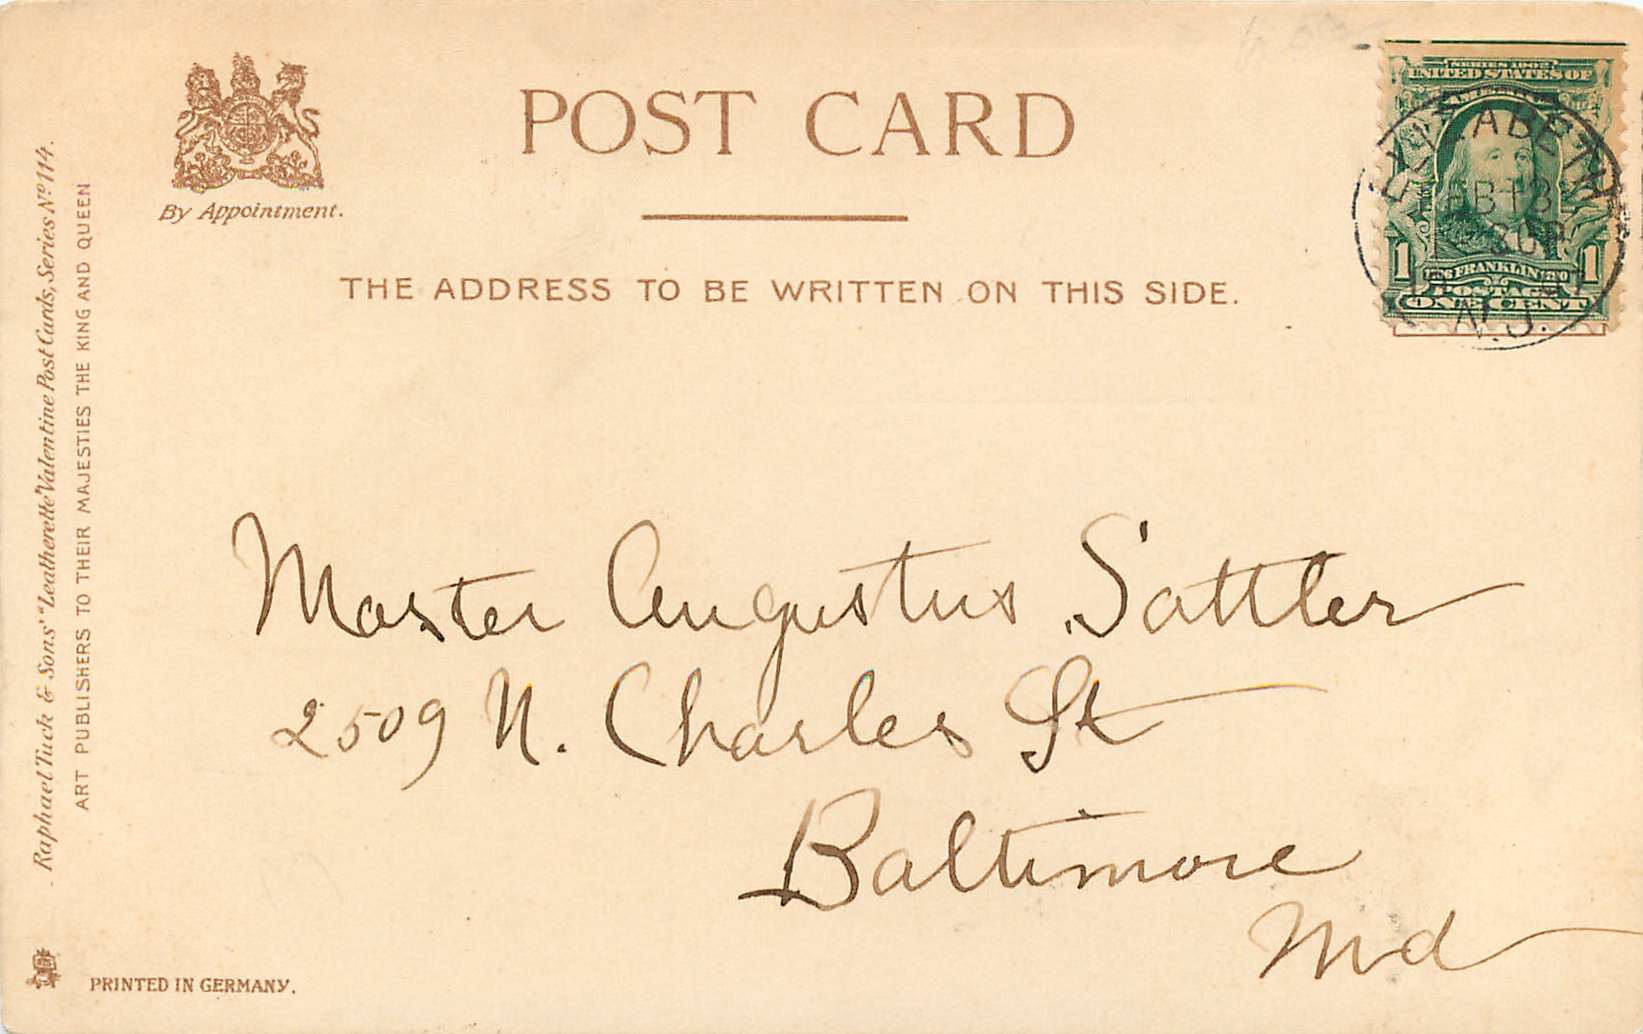 POST CARD
By Appointment.
THE ADDRESS TO BE WRITTEN ON THIS SIDE.
SERIES 1902
UNITED STATES OF
AMERICA
1 FRANKLIN 1
POSTAGE
ONE CENT
ELIZABETH
FEB 13
N.J.
Master Augustus Sattler
2509 N. Charles St
Baltimore
Md
Raphael Tuck & Sons' "Leatherette" Valentine Post Cards, Series Nº 114.
ART PUBLISHERS TO THEIR MAJESTIES THE KING AND QUEEN
PRINTED IN GERMANY.